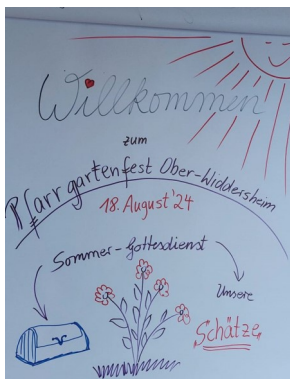 Willkommen
zum
Pfarrgartenfest Ober-Widdersheim
18. August '24
Sommer-Gottesdienst
Unsere
Schätze